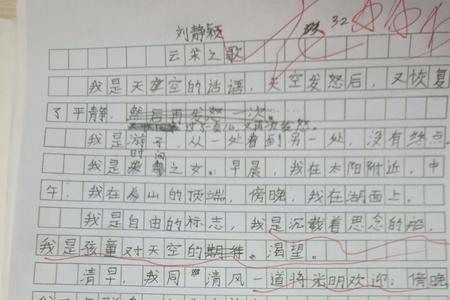 刘静颖 32
云朵之歌
我是天空的话语,天空发怒后,又恢复
了平静,然后再发怒一次。
我是游子,从一处看到另一处,没有终点。
我是时间之女。早晨,我在太阳附近,中
午:我在山的顶端,傍晚,我在湖面上。
我是自由的标志,我是沉载着思念的船,
我是孩童对天空的期待。渴望。
清早,我同清风一道将光明欢迎;傍晚